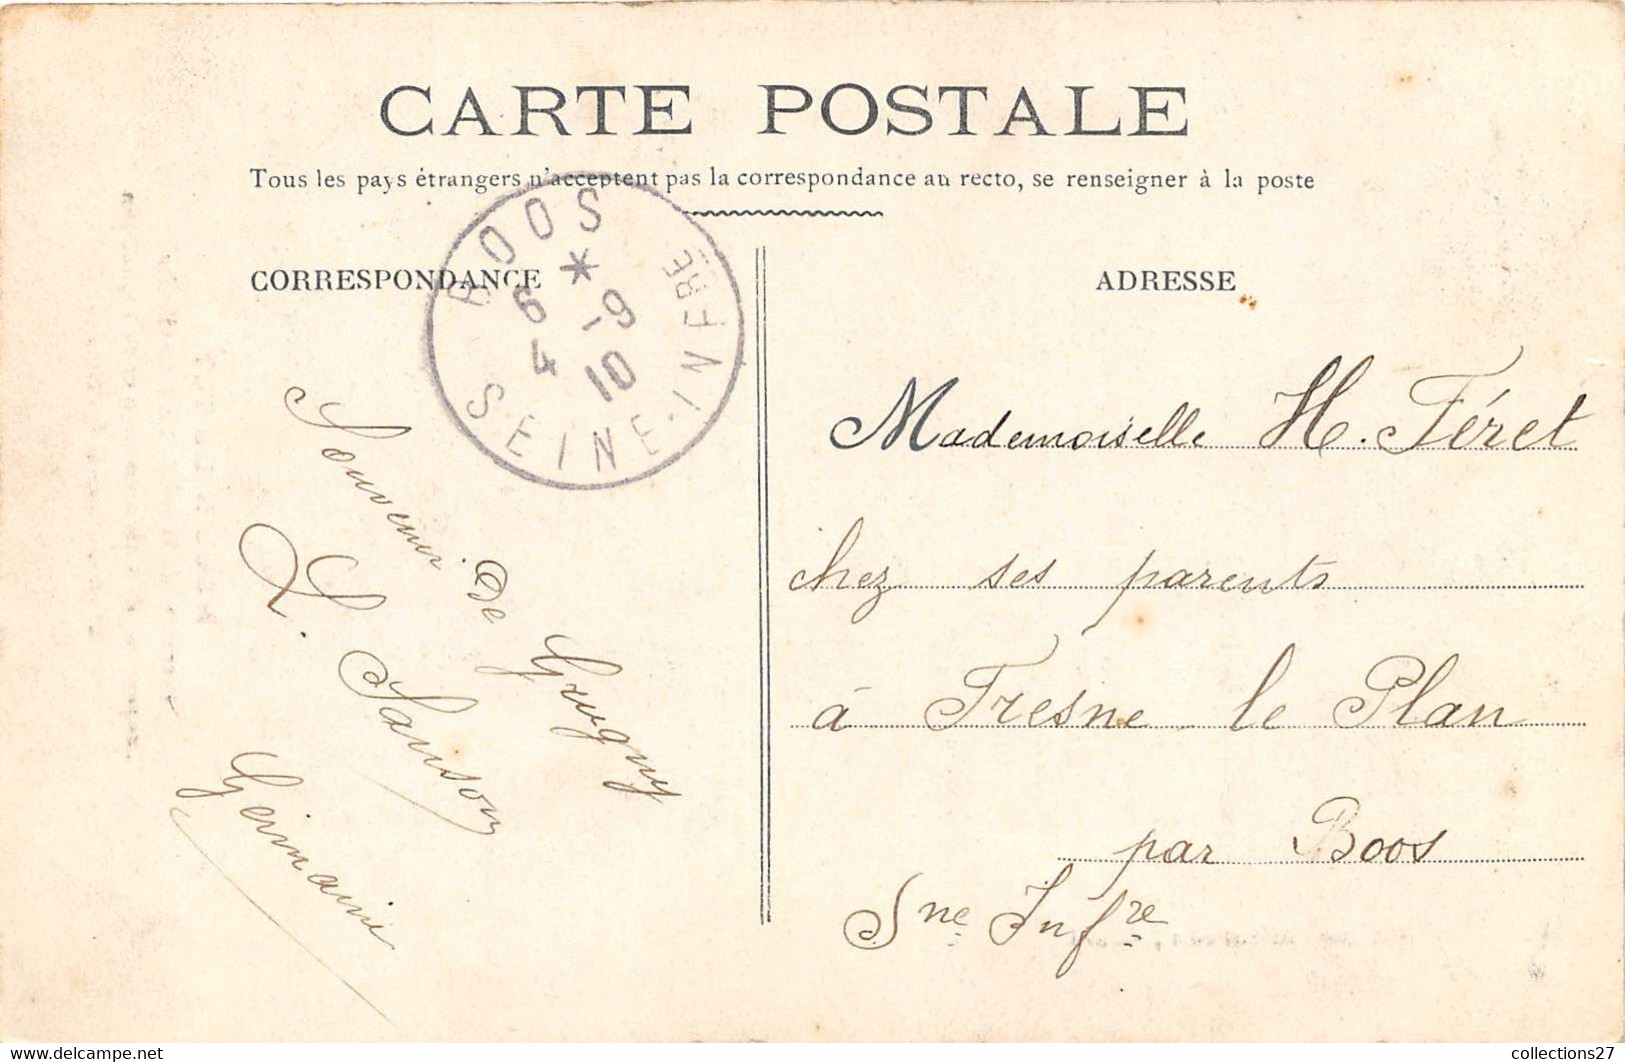 CARTE POSTALE
Tous les pays étrangers n'acceptent pas la correspondance au recto, se renseigner à la poste
CORRESPONDANCE
ADRESSE
BOOS
*
6 -9
4 10
SEINE-INFRE
Souvenir de Grugny
L. Sanson
Germaine
Mademoiselle H. Féret
chez ses parents
à Fresne le Plan
par Boos
Sne Infre
collections27